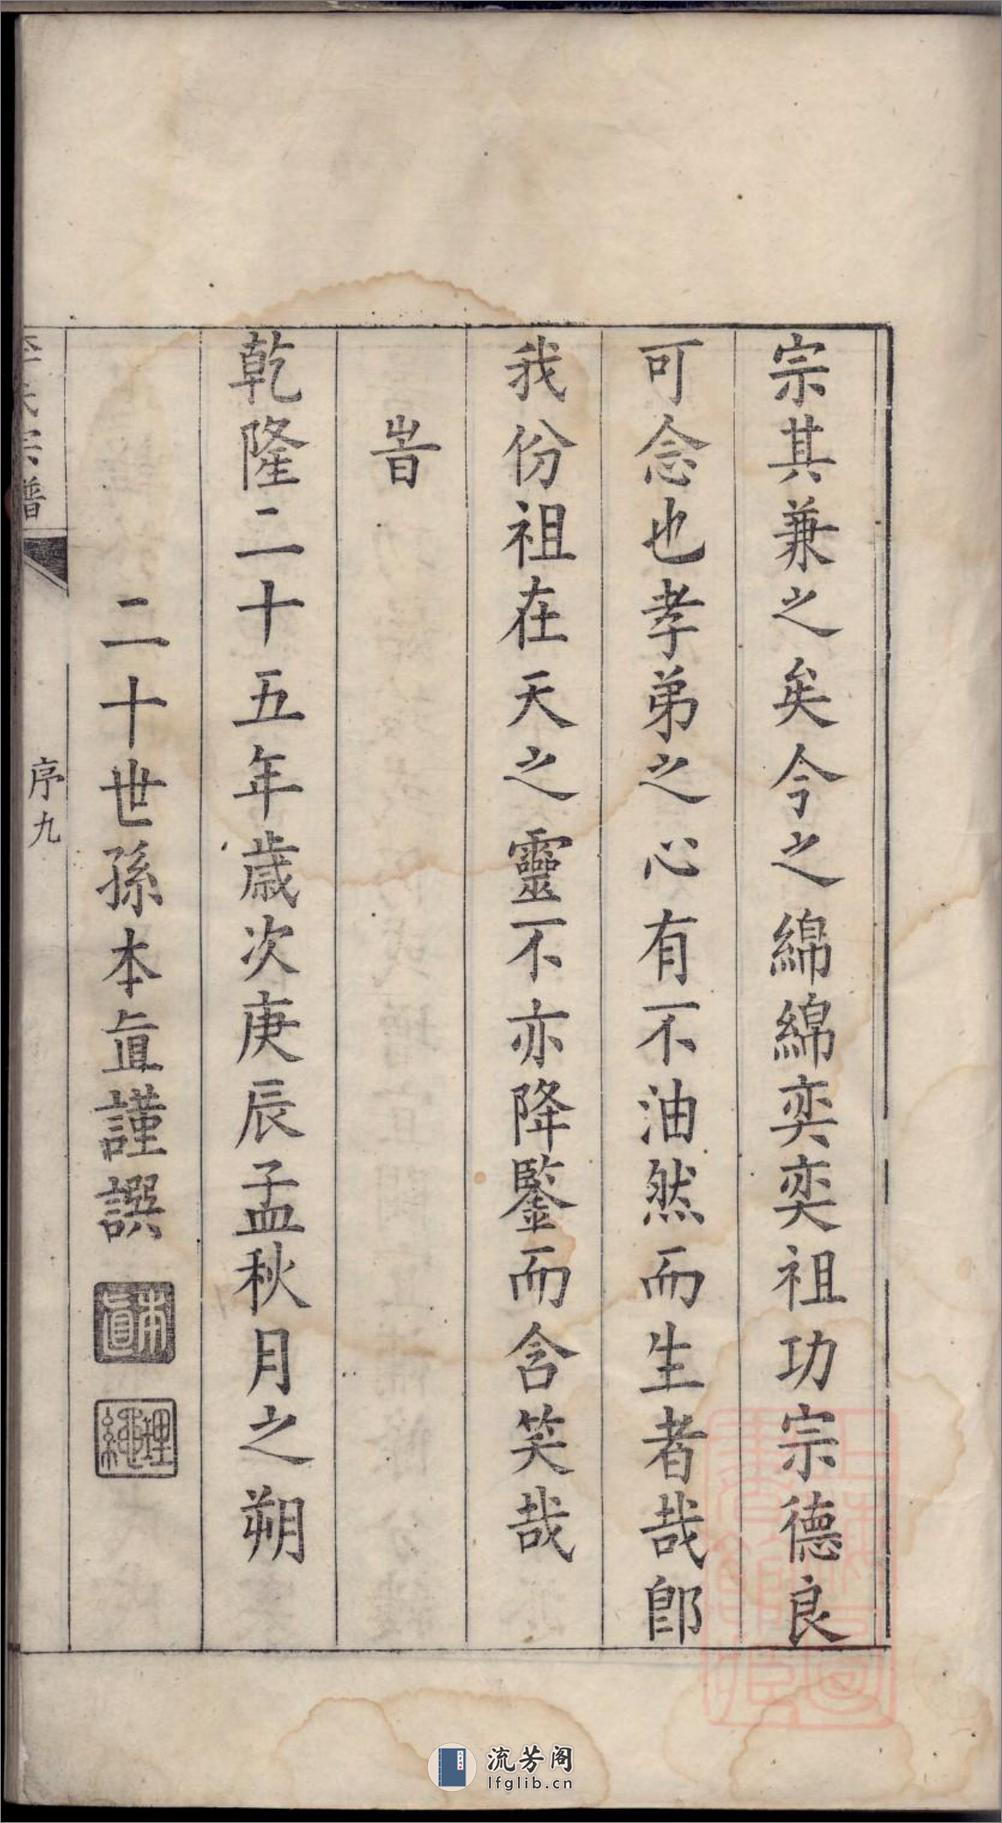 宗其兼之矣今之綿綿奕奕祖功宗德良
可念也孝弟之心有不油然而生者哉卽
我份祖在天之靈不亦降鑒而含笑哉
旹
乾隆二十五年歲次庚辰孟秋月之朔
二十世孫本眞謹譔
本眞
理繩
李氏宗譜
序九
流芳阁
lfglib.cn